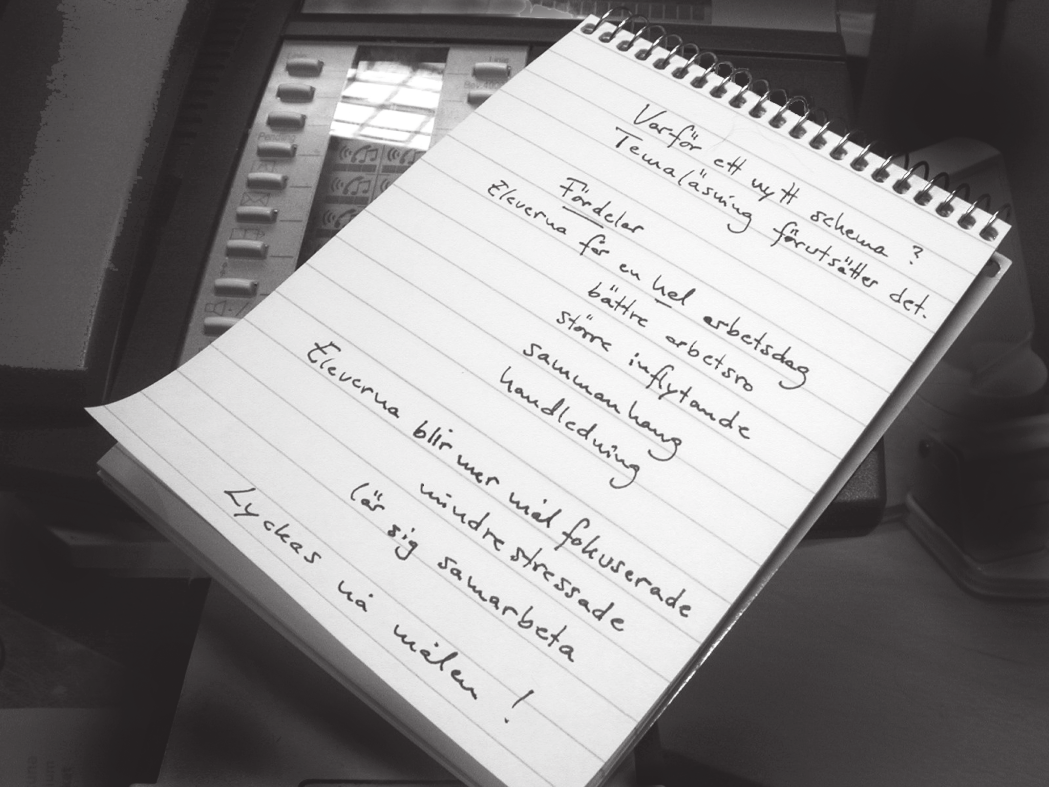 Varför ett nytt schema?
Temaläsning förutsätter det.
Fördelar
Eleverna får en hel arbetsdag
bättre arbetsro
större inflytande
sammanhang
handledning
Eleverna blir mer målfokuserade
mindre stressade
lär sig samarbeta
Lyckas nå målen!